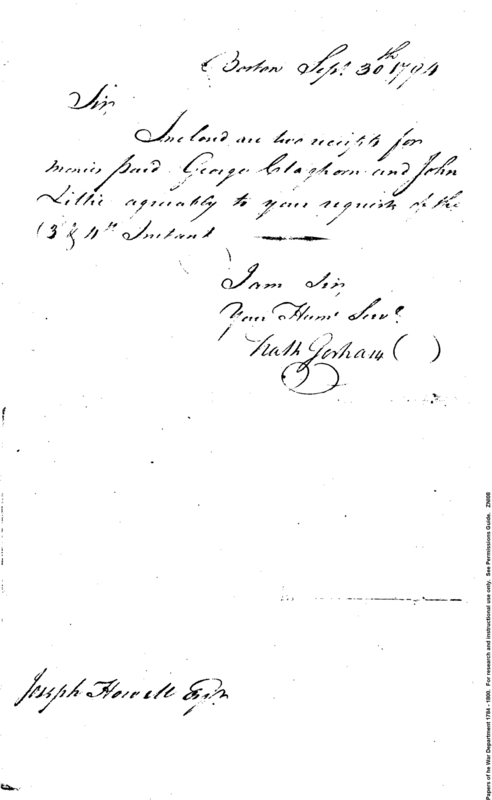 Boston Sept. 30th 1794
Sir,
Inclosd are two receipts for
monies paid George Claghorn and John
Little agreeably to your requests of the
(3 & 4th Instant
I am Sir,
Your Humle Servt.
Nath Gorham ( )
Joseph Howell Esqr.
Papers of he War Department 1784 - 1800. For research and instructional use only. See Permissions Guide. ZN606